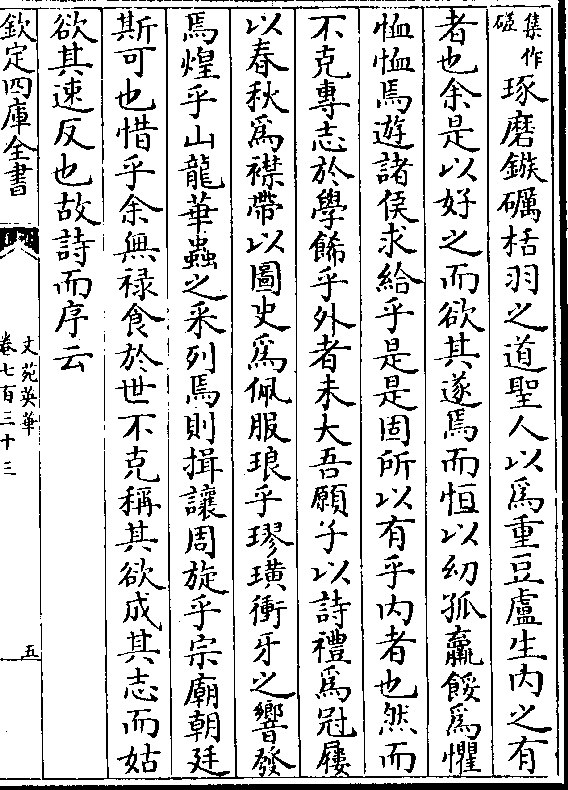 集作磋琢磨鏃礪栝羽之道聖人以為重豆盧生内之有
者也余是以好之而欲其遂焉而恒以幼孤羸餒為懼
恤恤焉遊諸侯求給乎是是固所以有乎内者也然而
不克專志於學餙乎外者未大吾願子以詩禮為冠屨
以春秋為襟帶以圖史為佩服琅乎璆璜衝牙之響發
焉煌乎山龍華蟲之采列焉則揖讓周旋乎宗廟朝廷
斯可也惜乎余無禄食於世不克稱其欲成其志而姑
欲其速反也故詩而序云
欽定四庫全書
文苑英華
卷七百三十三
五